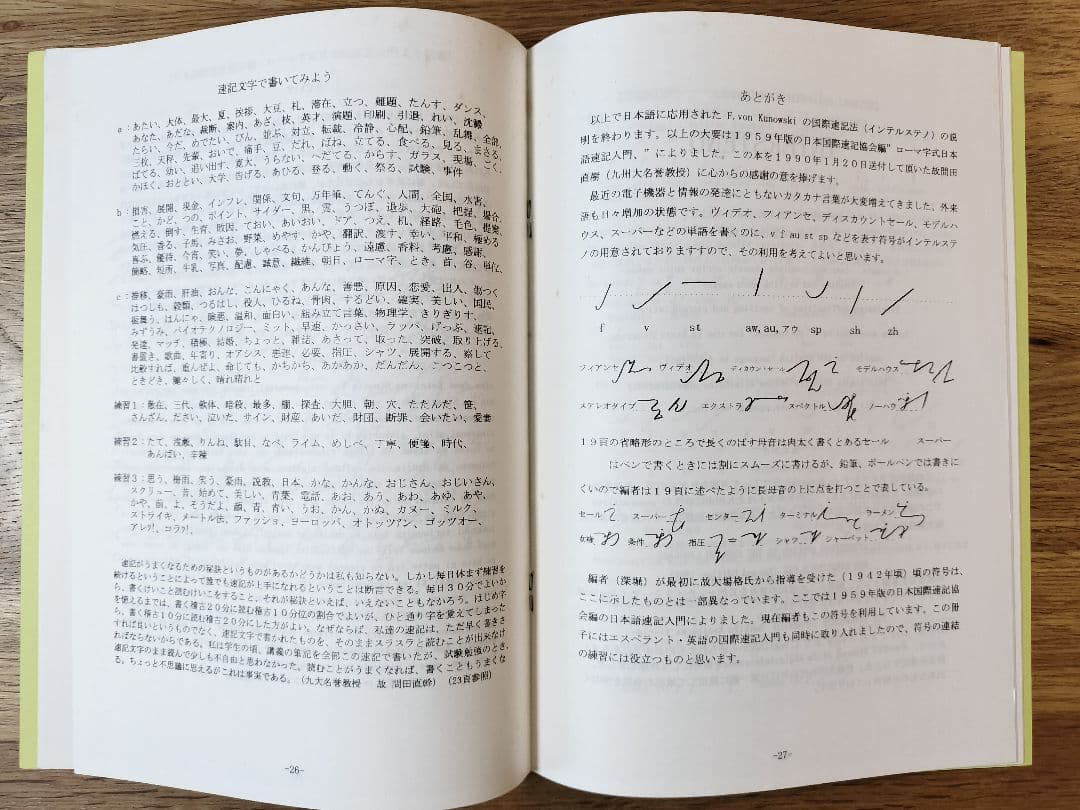 速記文字で書いてみよう
a:あたい、大体、最大、夏、挨拶、大豆、札、滞在、立つ、難題、たんす、ダンス、
あなた、あだな、裁断、案内、あざ、枝、英才、演題、印刷、引退、れい、沈錨
たらい、今だ、めでたい、びん、並ぶ、対立、転載、冷静、心配、鉛筆、乱舞、全部、
三枚、天秤、先輩、おいで、痛手、豆、だれ、ばね、立てる、食べる、見る、まさる、
ばてる、幼い、追い出す、寛大、うらない、へだてる、からす、ガラス、現場、ごく、
かほく、おととい、大学、告げる、あひる、登る、動く、祭る、試験、事件
b:損害、展開、現金、インフレ、関係、文句、万年筆、てんぐ、人間、全国、水害、
こと、かど、つの、ポイント、サイダー、黒、雲、うつぼ、退歩、大砲、把握、場合、
燃える、倒す、生育、敗因、ておい、あいおい、ドア、つえ、机、経路、毛色、提案、
気圧、香る、子馬、みさお、野菜、めやす、かや、翻訳、渡す、幸い、平和、極める
喜ぶ、優待、今宵、笑い、夢、しゃべる、かんぴょう、遠慮、香料、考慮、感謝、
簡略、短所、牛乳、写真、配慮、誠意、繊維、朝日、ローマ字、とき、首、谷、単位
c:蓄移、豪雨、肝油、おんな、こんにゃく、あんな、善悪、原因、恋愛、出入、傷つく
はつしも、穀類、つるはし、役人、ひるね、骨肉、するどい、確実、美しい、国民、
振舞う、はんにゃ、険悪、温和、面白い、組み立て言葉、物理学、きりぎりす、
みずうみ、バイオテクノロジー、ミット、早速、かっさい、ラッパ、げっぷ、速記、
発達、マッチ、積極、結婚、ちょっと、雑誌、あさって、取った、突破、取り上げる、
書置き、歌曲、年寄り、オアシス、悪運、必要、指圧、シャツ、展開する、察して
比較すれば、重んぜよ、命じても、かちから、あかあか、だんだん、こつこつと、
ときどき、騒々しく、晴れ晴れと
練習1:散在、三代、軟体、暗殺、最多、棚、探査、大胆、朝、穴、たたんだ、笹、
さんざん、ださい、泣いた、サイン、財産、あいだ、財団、断罪、会いたい、愛妻
練習2:たて、遠慮、りんね、駄目、なべ、ライム、めしべ、丁寧、便箋、時代、
あんばい、辛辣
練習3:思う、梅雨、笑う、豪雨、説教、日本、かな、かんな、おじさん、おじいさん、
スクリュー、昔、始めて、美しい、青葉、電話、あお、あう、あわ、あゆ、あや、
かや、面、よ、そうだよ、顔、青、青い、うお、かん、かぬ、カヌー、ミルク、
ストライキ、メートル法、ファッショ、ヨーロッパ、オトッツアン、ゴッツオー、
アレッ!、コラッ!、
速記がうまくなるための秘訣というものがあるかどうかは私も知らない。しかし毎日休まず練習を
続けるということによって誰でも速記が上手になれるということは断言できる。毎日30分でよいか
ら、書くけいこと読むけいこをすること、それが秘訣といえば、いえないこともなかろう。はじめ字
を憶えるまでは、書く稽古20分に読む稽古10分位の割合でよいが、ひと通り字を覚えてしまった
ら、書く稽古10分に読む稽古20分にした方がよい。なぜならば、私達の速記は、ただ早く書きさ
すれば良いというものでなく、速記文字で書かれたものを、そのままスラスラと読むことが出来なけ
ればならないからである。私は学生の頃、講義の筆記を全部この速記で書いたが、試験勉強のとき、
速記文字のまま読んで少しも不自由と思わなかった。読むことがうまくなれば、書くこともうまくな
る。ちょっと不思議に思えるがこれは事実である。(九大名誉教授 故 間田直幹)(23頁参照)
-26-
あとがき
以上で日本語に応用された F.von Kunowski の国際速記法(インテルステノ)の説
明を終わります。以上の大要は1959年版の日本国際速記協会編”ローマ字式日本
語速記入門、”によりました。この本を1990年1月20日送付して頂いた故間田
直樹(九州大名誉教授)に心からの感謝の意を捧げます。
最近の電子機器と情報の発達にともないカタカナ言葉が大変増えてきました。外来
語も日々増加の状態です。ヴィデオ、フィアンセ、ディスカウントセール、モデルハ
ウス、スーパーなどの単語を書くのに、v f au st sp などを表す符号がインテルステ
ノの用意されておりますすので、その利用を考えてよいと思います。
f v st aw,au,アウ sp sh zh
フィアンセ ヴィデオ ディカウン・セール モデルハウス
ステレオタイプ エクストラ スペクトル ノーハウ
19頁の省略形のところで長くのばす母音は肉太く書くとあるセール スーパー
はペンで書くときには割にスムーズに書けるが、鉛筆、ボールペンでは書きに
くいので編者は19頁に述べたように長母音の上に点を打つことで表している。
セール スーパー センター ターミナル ラーメン
女嬢 条件 指圧 = シャツ シャーベット
編者(深堀)が最初に故大場格氏から指導を受けた(1942年頃)頃の符号は、
ここに示したものとは一部異なっています。ここでは1959年版の日本国際速記協
会編の日本語速記入門によりました。現在編者もこの符号を利用しています。この冊
子にはエスペラント・英語の国際速記入門も同時に取り入れましたので、符号の連結
の練習には役立つものと思います。
-27-